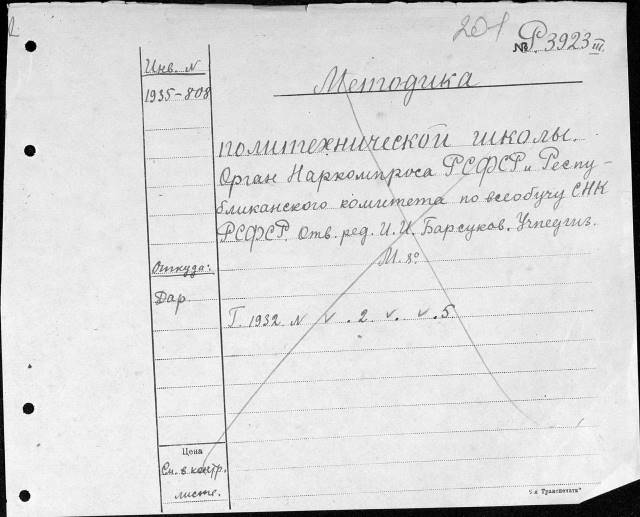 201
№ Р. 3923 III.
Инв. N
1935-808
Методика
политехнической школы.
Орган Наркомпроса РСФСР и Респу-
бликанского комитета по всеобучу СНК
РСФСР. Отв. ред. И. И. Барсуков. Учпедгиз.
М. 8°
Откуда:
Дар.
Г. 1932. N v . 2 v . v . 5
Цена
См. в контр.
листе.
"я Транспечать"